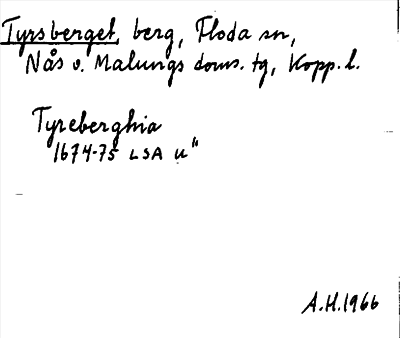 Tyrsberget, berg, Floda sn,
Nås o. Malungs doms. tg, Kopp. l.
Tyreberghia
1674-75 LSA u"
A.H.1966